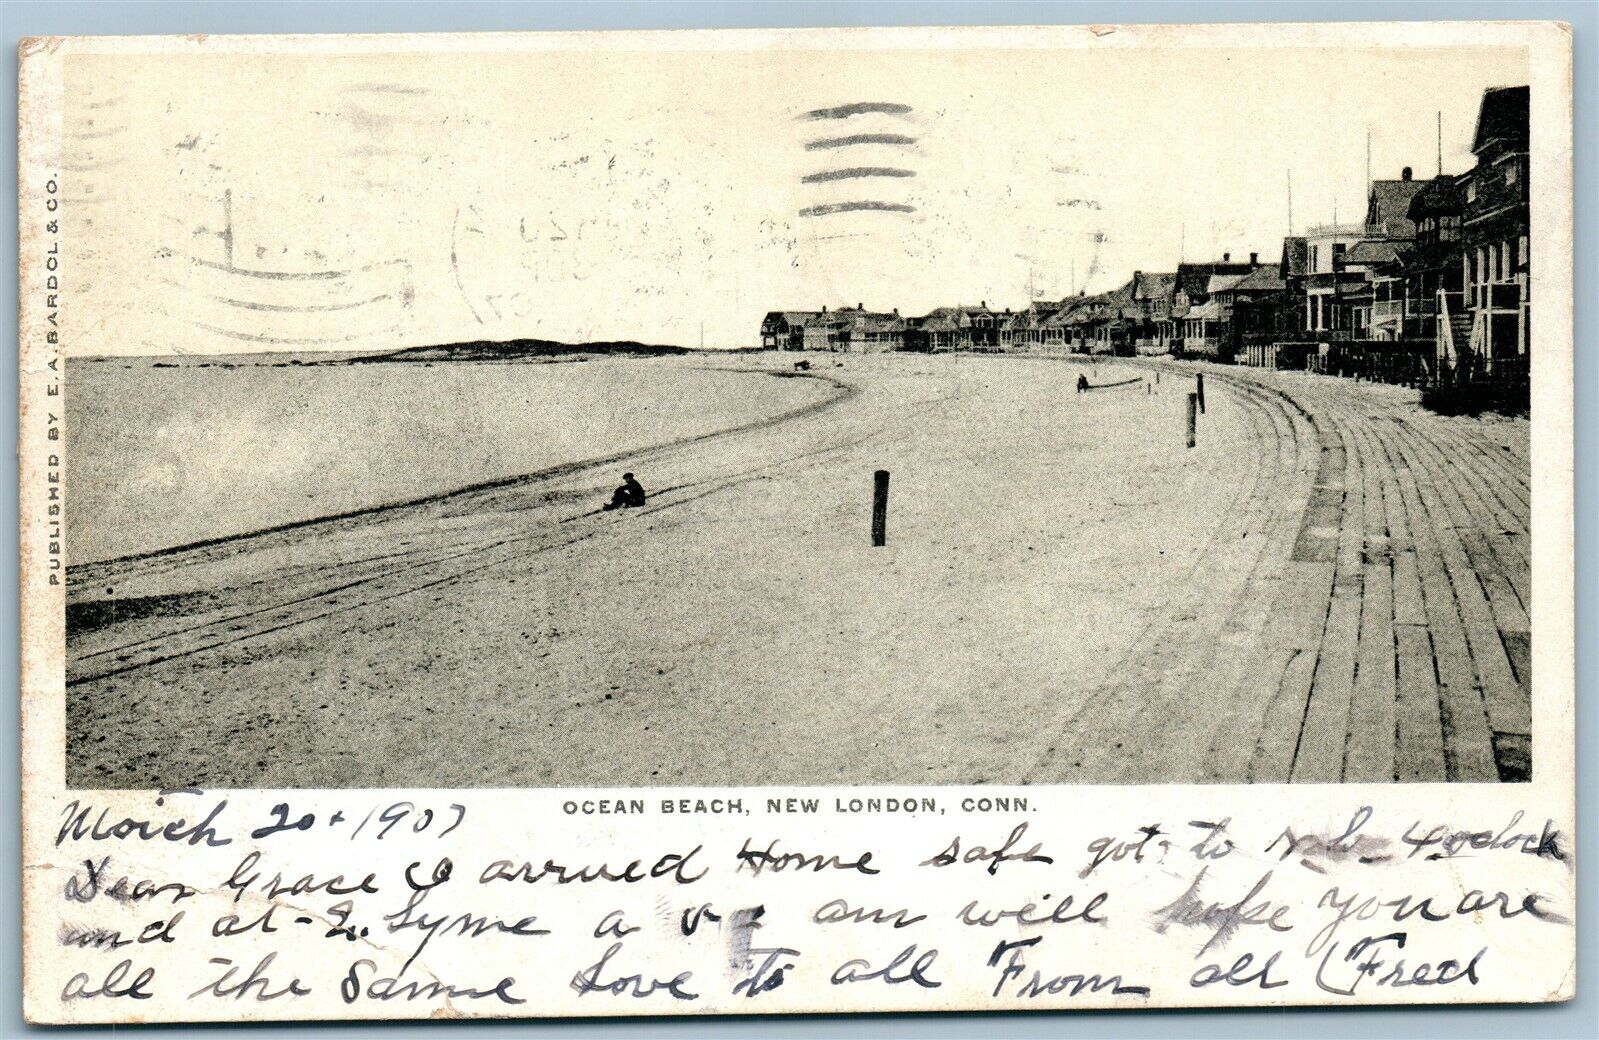 PUBLISHED BY E. A. BARDOL & CO.
OCEAN BEACH, NEW LONDON, CONN.
March 20, 1907
Dear Grace I arrived Home safe got to N. L. 4 oclock
and at Lyme a am well hope you are
all the same Love to all From all Fred